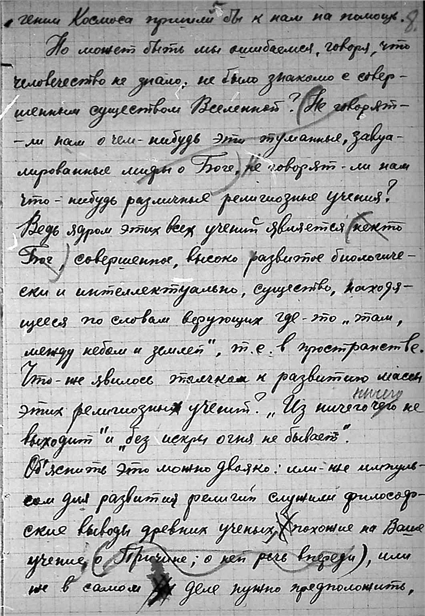 гении Космоса пришли бы к нам на помощь. 8.
Но может быть мы ошибаемся, говоря, что
человечество не знало; не было знакомо с совер-
шенным существом Вселенной? (Не говорят-
-ли нам о чем-нибудь эти туманные, завуа-
лированные мифы о Боге,) не говорят-ли нам
что-нибудь различные религиозные учения?
Ведь ядром этих всех учений является (некто
Бог,) совершенное, высоко развитое биологиче-
ски и интеллектуально, существо, находя-
щееся по словам верующих где-то „там,
между небом и землей", т.е. в пространстве.
Что-же явилось толчком к развитию массы
этих религиозных учений? „Из ничего ничего не
выходит" и „без искры огня не бывает".
Объяснить это можно двояко: или-же импуль-
сом для развития религий служили философ-
ские выводы древних ученых (похожие на Ваше
учение о Причине; о ней речь впереди), или
же в самом деле нужно предположить,